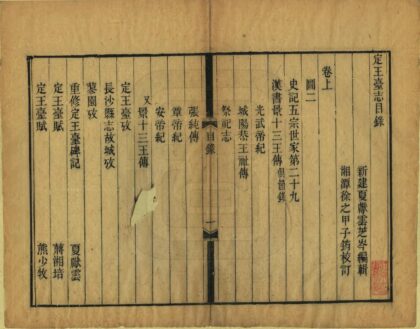 定王臺志目錄
新建夏獻雲芝岑編輯
湘潭徐之甲子鈞校訂
卷上
圖二
史記五宗世家第二十九
漢書景十三王傳節錄
光武帝紀
城陽恭王祉傳
祭祀志
目錄
一
張純傳
章帝紀
安帝紀
又景十三王傳
定王臺攷
長沙縣志故城攷
蓼園攷
重修定王臺碑記 夏獻雲
定王臺賦 蔣湘培
定王臺賦 熊少牧